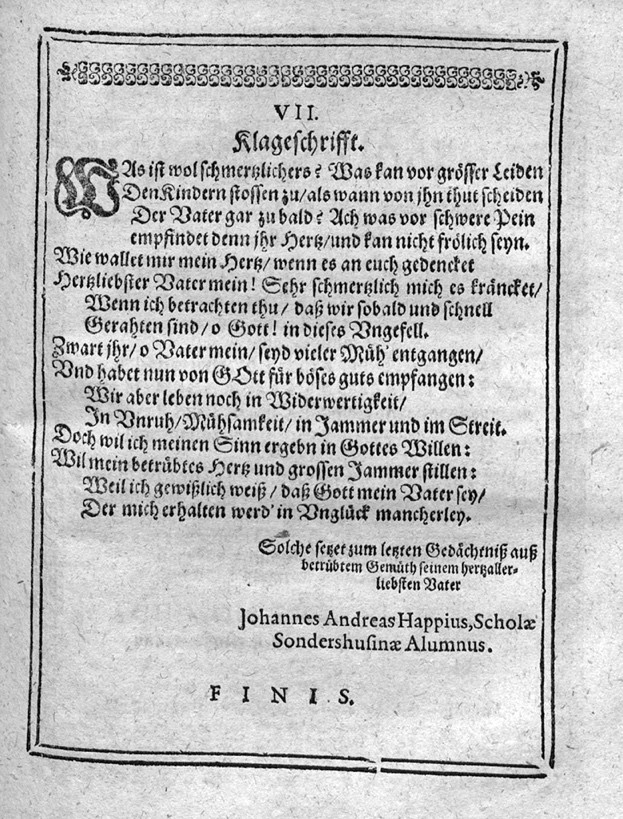 VII.
Klageschrifft.
WAs ist wol schmertzlichers? Was kan vor grösser Leiden
Den Kindern stossen zu/ als wann von jhn thut scheiden
Der Vater gar zu bald? Ach was vor schwere Pein
empfindet denn jhr Hertz/ und kan nicht frölich seyn.
Wie wallet mir mein Hertz/ wenn es an euch gedencket
Hertzliebster Vater mein! Sehr schmertzlich mich es kräncket/
Wenn ich betrachten thu/ daß wir sobald und schnell
Gerahten sind/ o Gott! in dieses Vngefell.
Zwart jhr/ o Vater mein/ seyd vieler Müh' entgangen/
Vnd habet nun von GOtt für böses guts empfangen:
Wir aber leben noch in Widerwertigkeit/
In Vnruh/ Mühsamkeit/ in Jammer und im Streit.
Doch wil ich meinen Sinn ergebn in Gottes Willen:
Wil mein betrübtes Hertz und grossen Jammer stillen:
Weil ich gewißlich weiß/ daß Gott mein Vater sey/
Der mich erhalten werd' in Vnglück mancherley.
Solche setzet zum letzten Gedächtniß auß
betrübtem Gemüth seinem hertzaller-
liebsten Vater
Johannes Andreas Happius, Scholæ
Sondershusinæ Alumnus.
FINIS.